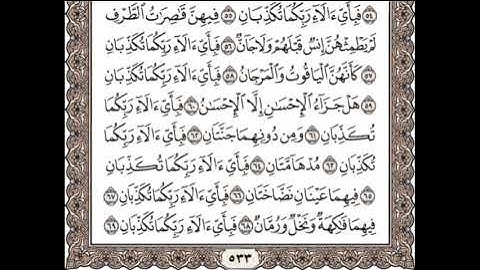 ٥٤ فَبِأَىِّ ءَالَآءِ رَبِّكُمَا تُكَذِّبَانِ ٥٥ فِيهِنَّ قَٰصِرَٰتُ ٱلطَّرْفِ
لَمْ يَطْمِثْهُنَّ إِنسٌ قَبْلَهُمْ وَلَا جَآنٌّ ٥٦ فَبِأَىِّ ءَالَآءِ رَبِّكُمَا تُكَذِّبَانِ
٥٧ كَأَنَّهُنَّ ٱلْيَاقُوتُ وَٱلْمَرْجَانُ ٥٨ فَبِأَىِّ ءَالَآءِ رَبِّكُمَا تُكَذِّبَانِ
٥٩ هَلْ جَزَآءُ ٱلْإِحْسَٰنِ إِلَّا ٱلْإِحْسَٰنُ ٦٠ فَبِأَىِّ ءَالَآءِ رَبِّكُمَا
تُكَذِّبَانِ ٦١ وَمِن دُونِهِمَا جَنَّتَانِ ٦٢ فَبِأَىِّ ءَالَآءِ رَبِّكُمَا
تُكَذِّبَانِ ٦٣ مُدْهَآمَّتَانِ ٦٤ فَبِأَىِّ ءَالَآءِ رَبِّكُمَا تُكَذِّبَانِ
٦٥ فِيهِمَا عَيْنَانِ نَضَّاخَتَانِ ٦٦ فَبِأَىِّ ءَالَآءِ رَبِّكُمَا تُكَذِّبَانِ ٦٧
فِيهِمَا فَٰكِهَةٌ وَنَخْلٌ وَرُمَّانٌ ٦٨ فَبِأَىِّ ءَالَآءِ رَبِّكُمَا تُكَذِّبَانِ ٦٩
٥٣٣